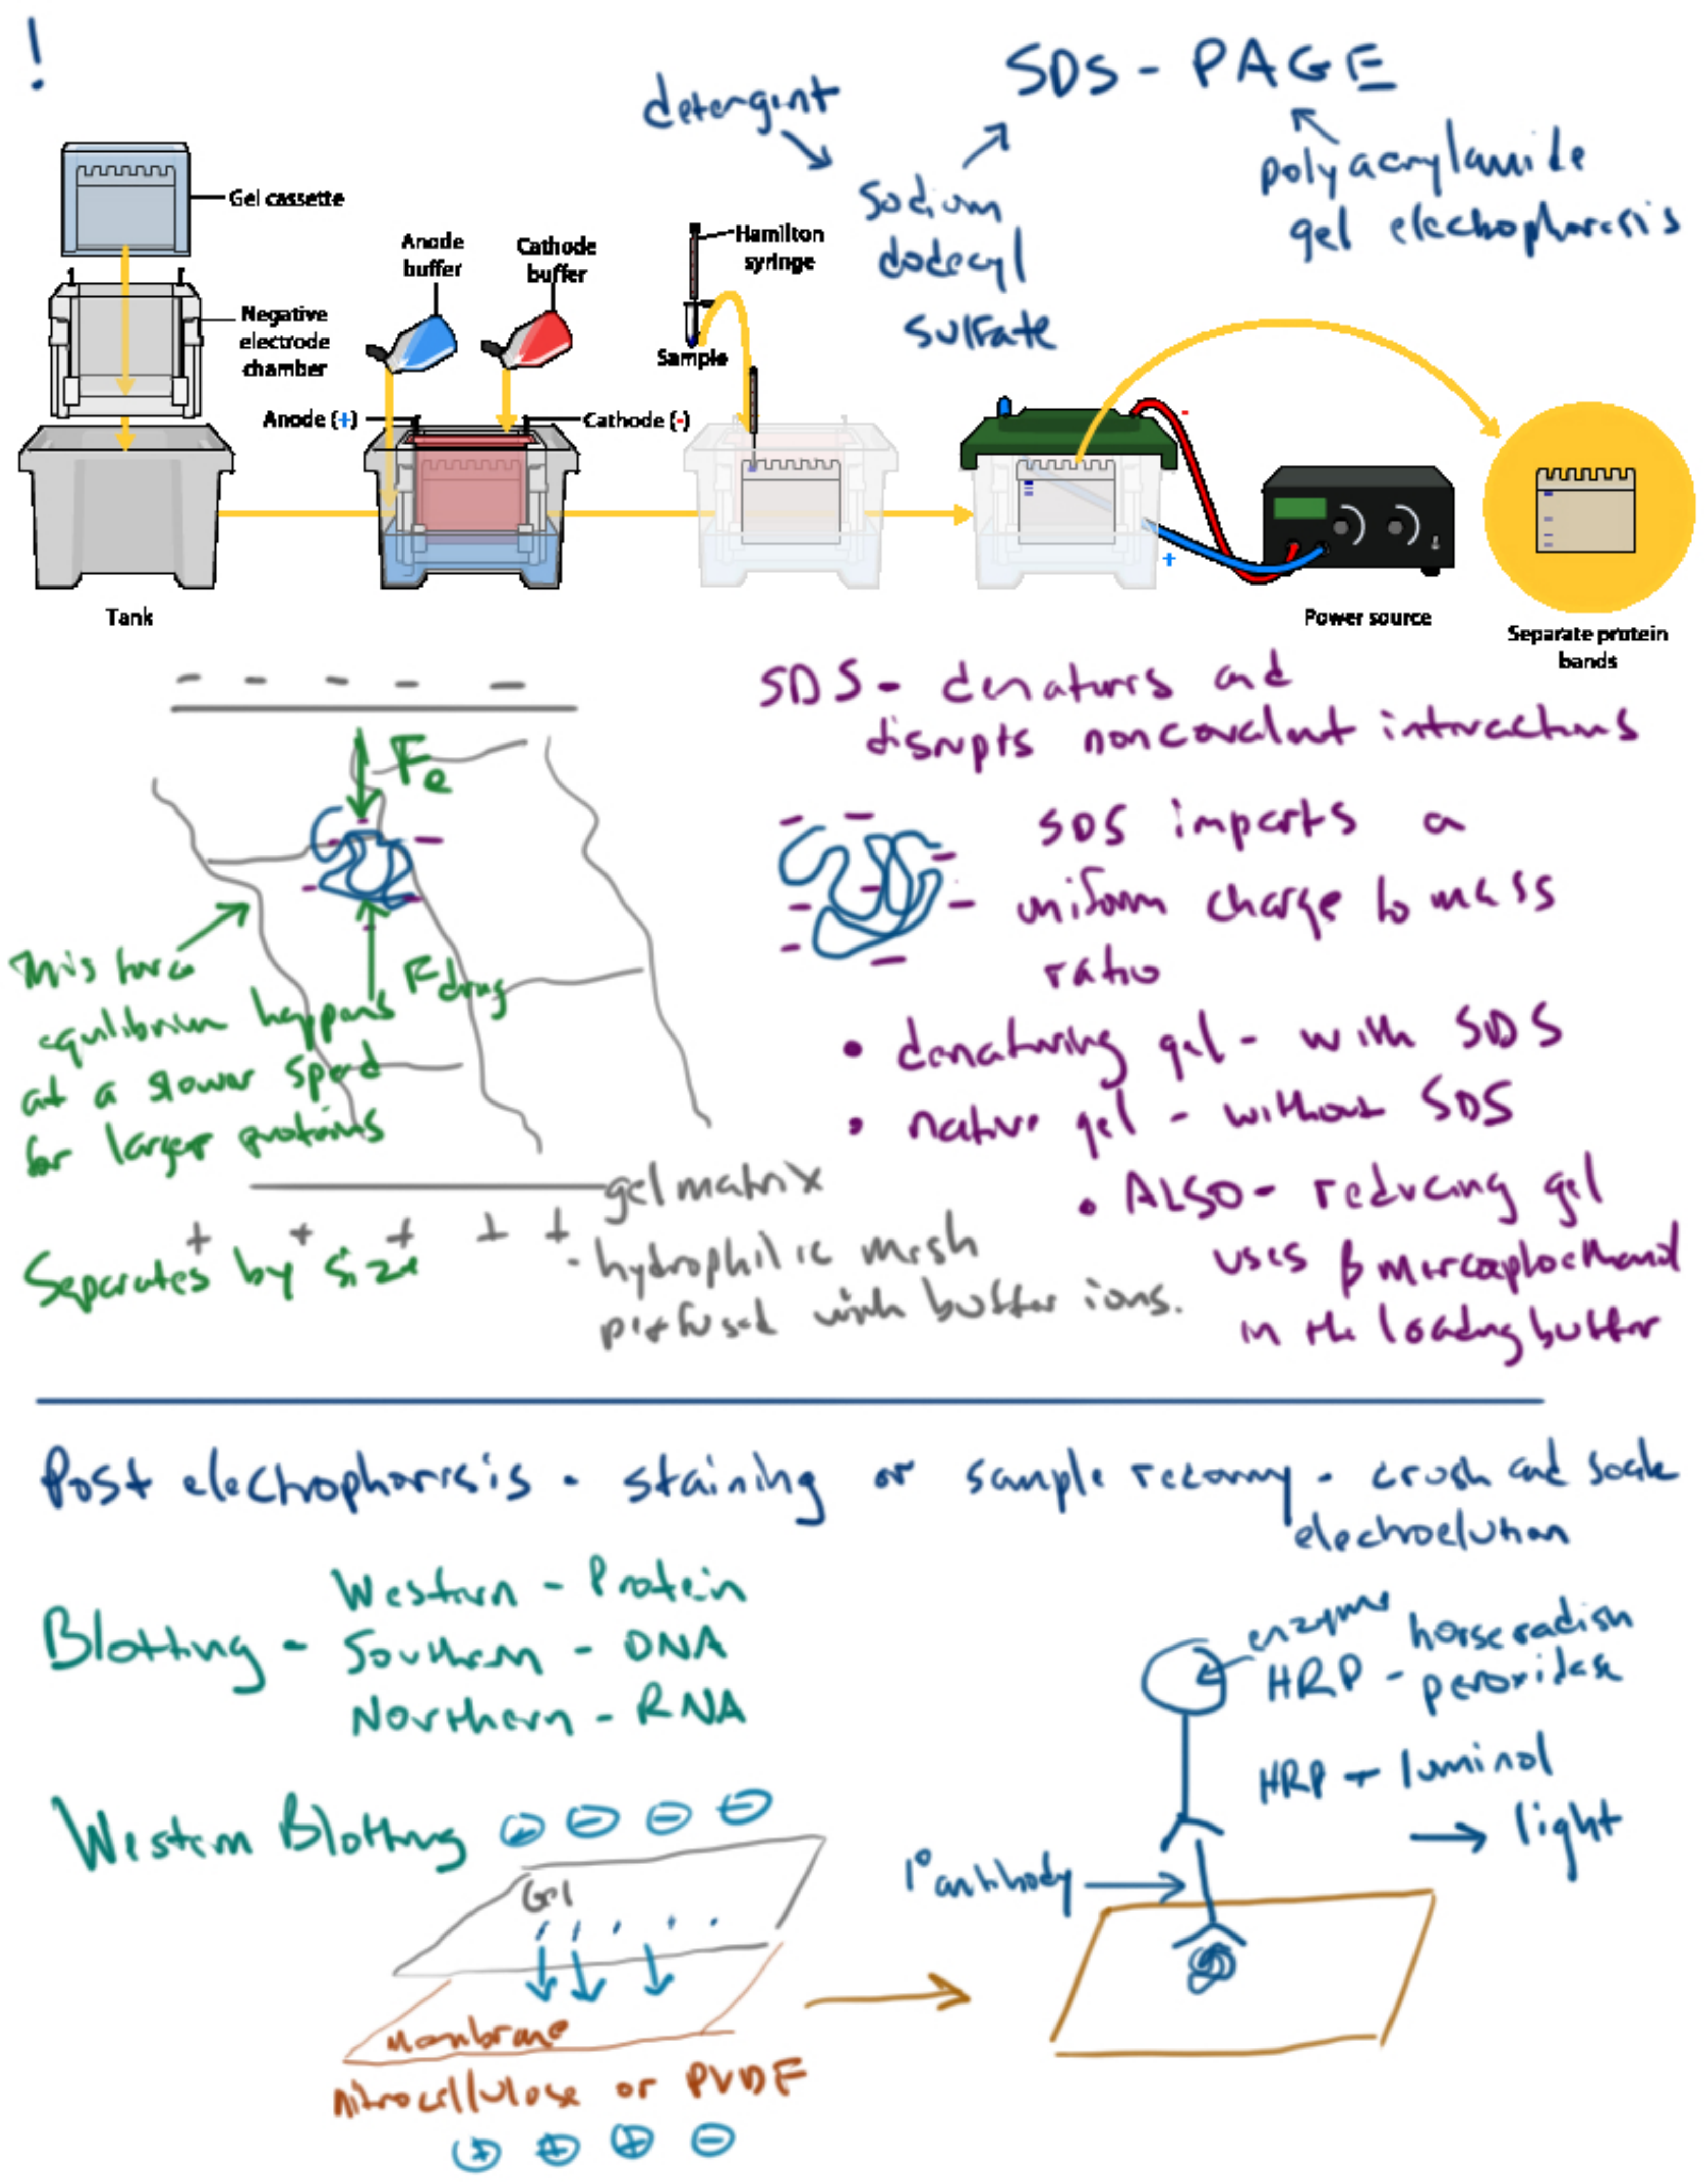 !
SDS - PAGE
detergent
sodium
dodecyl
sulfate
polyacrylamide
gel electrophoresis
Gel cassette
Negative
electrode
chamber
Anode
buffer
Cathode
buffer
Hamilton
syringe
Sample
Anode (+)
Cathode (-)
-
+
Tank
Power source
Separate protein
bands
- - - - -
Fe
Fdrag
This force
equilibrium happens
at a slower speed
for larger proteins
+ + + + +
Separates by size
gel matrix
- hydrophilic mesh
perfused with buffer ions.
SDS - denatures and
disrupts noncovalent interactions
SDS imparts a
uniform charge to mass
ratio
• denaturing gel - with SDS
• native gel - without SDS
• ALSO - reducing gel
uses β mercaptoethanol
in the loading buffer
Post electrophoresis - staining or sample recovery - crush and soak
electroelution
Blotting -
Western - Protein
Southern - DNA
Northern - RNA
Western Blotting
Gel
membrane
nitrocellulose or PVDF
enzyme horseradish
HRP - peroxidase
HRP + luminol
→ light
1° antibody